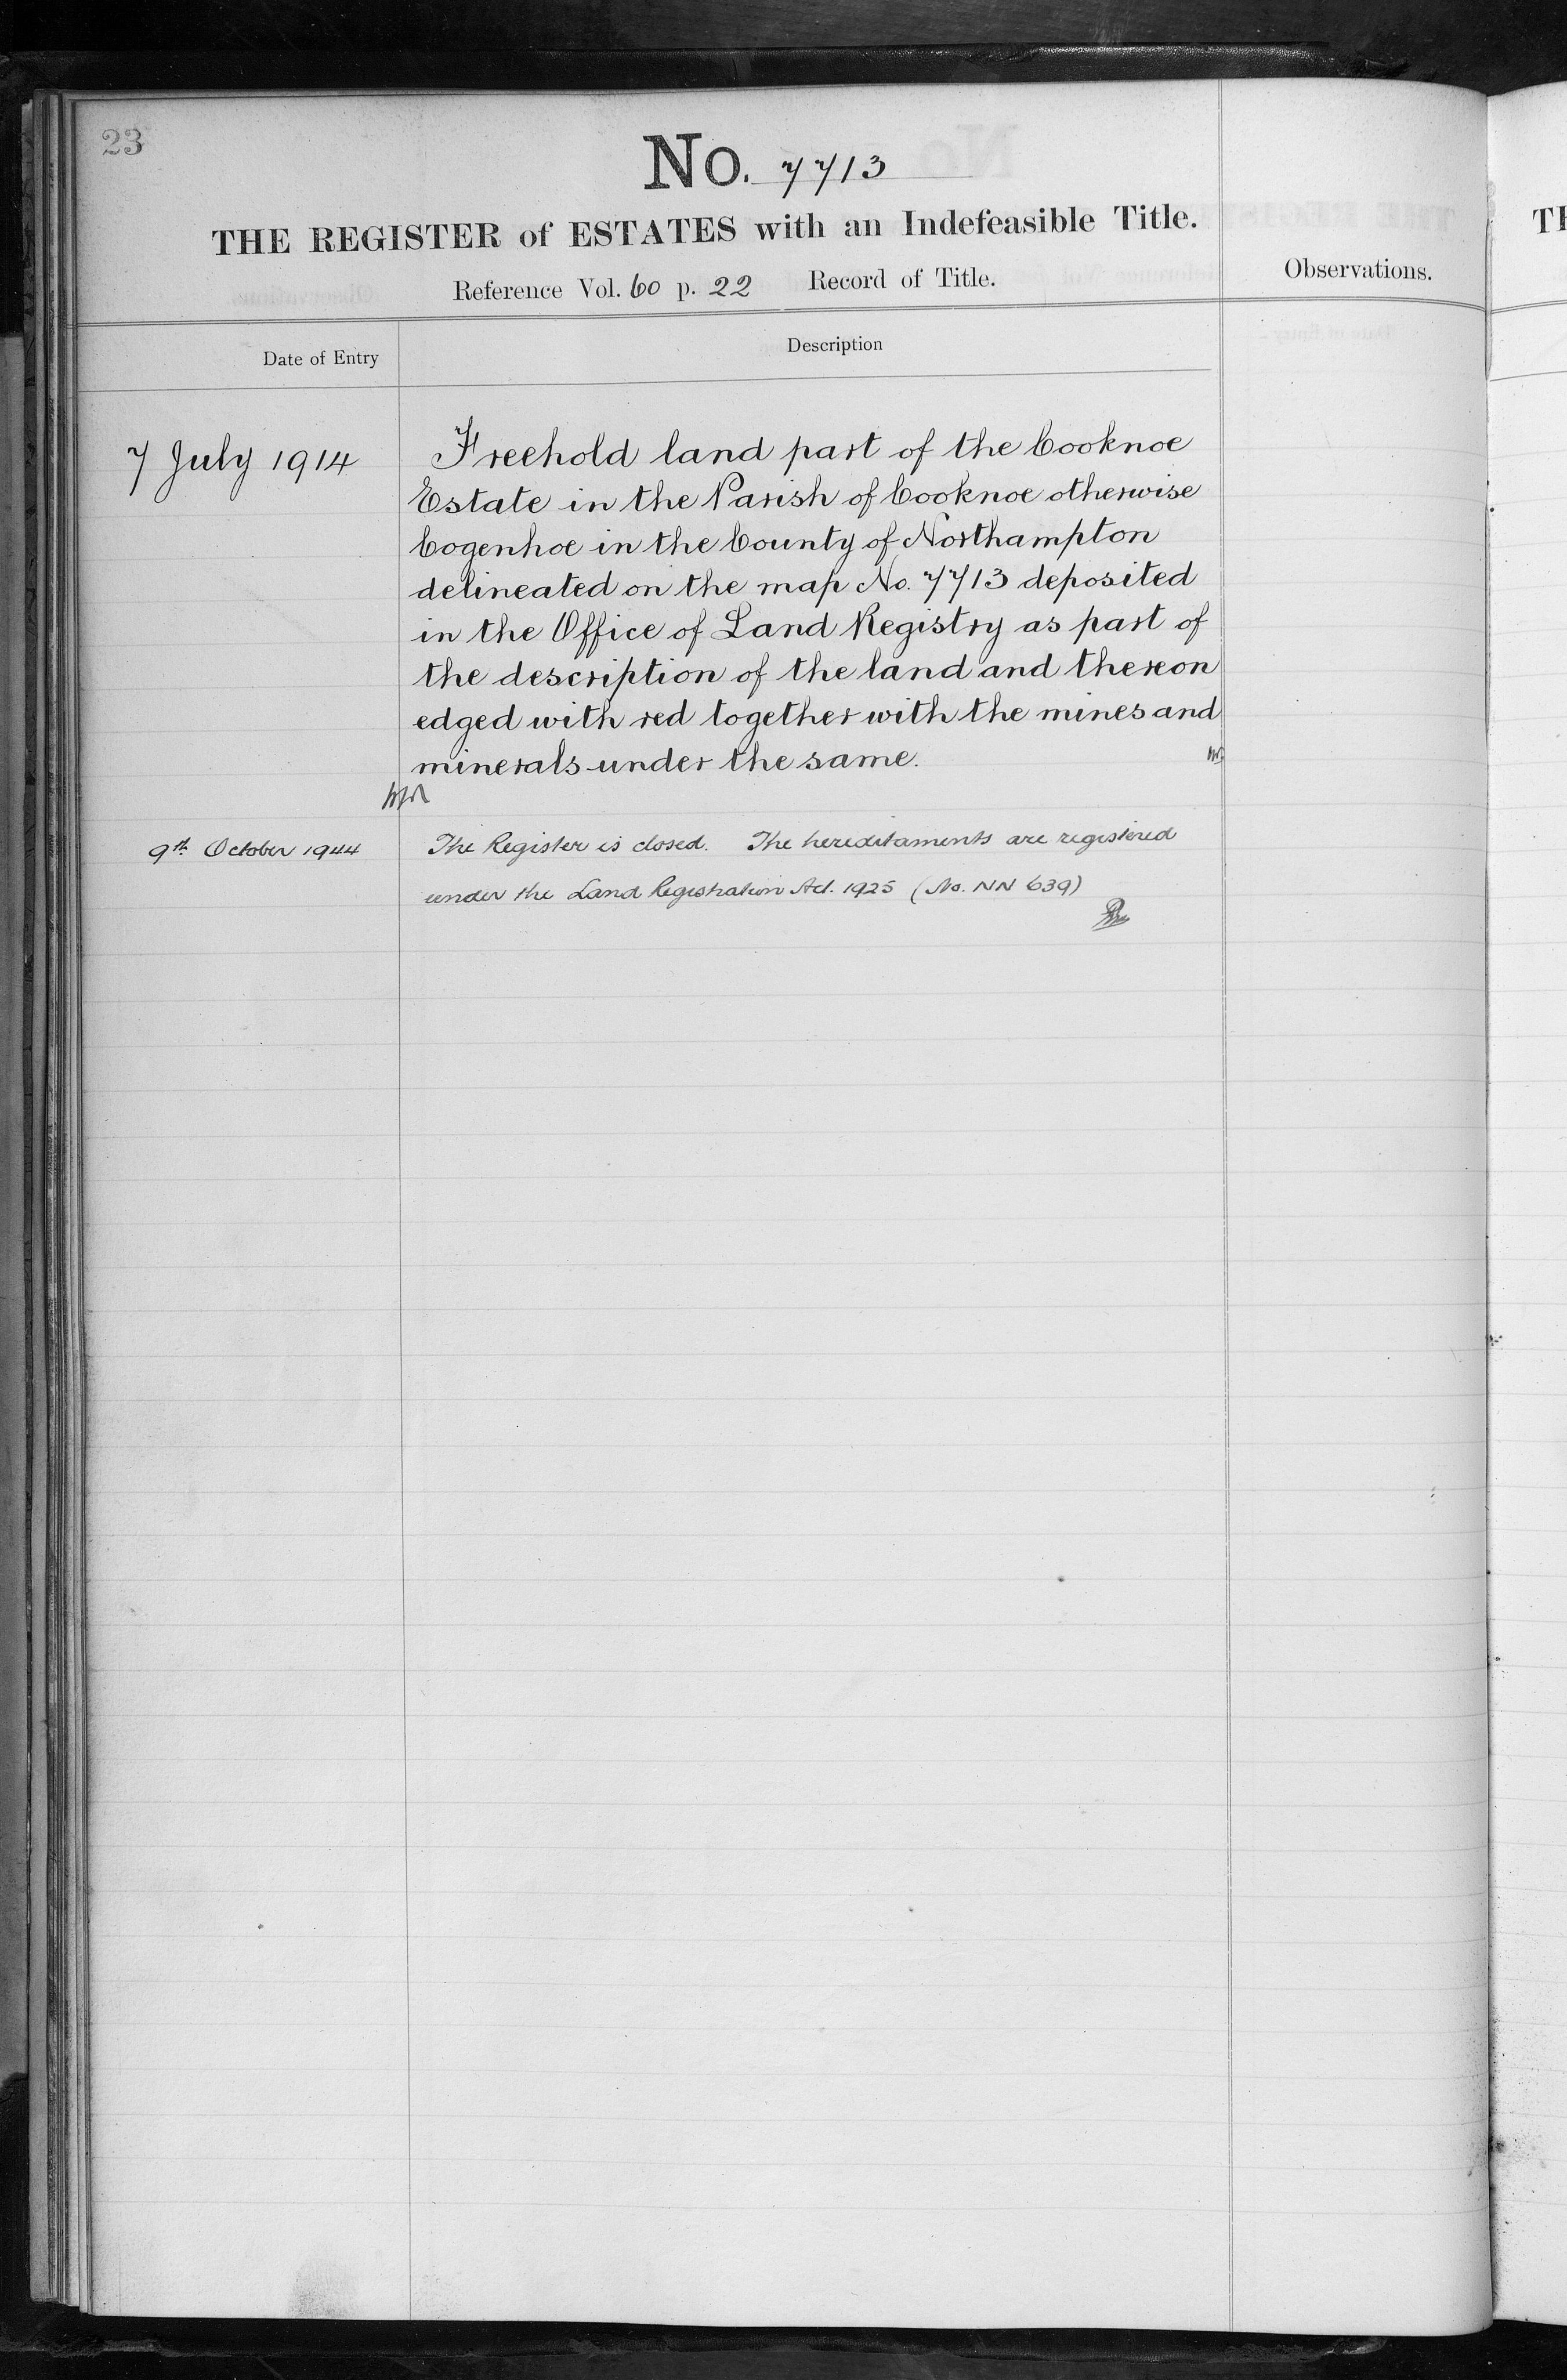 23
No. 7713
THE REGISTER of ESTATES with an Indefeasible Title.
Reference Vol. 60 p. 22 Record of Title.
Observations.
Date of Entry
Description
7 July 1914
Freehold land part of the Cooknoe
Estate in the Parish of Cooknoe otherwise
Cogenhoe in the County of Northampton
delineated on the map No. 7713 deposited
in the Office of Land Registry as part of
the description of the land and thereon
edged with red together with the mines and
minerals under the same.
9th October 1944
The Register is closed. The hereditaments are registered
under the Land Registration Act. 1925 (No. NN 639)